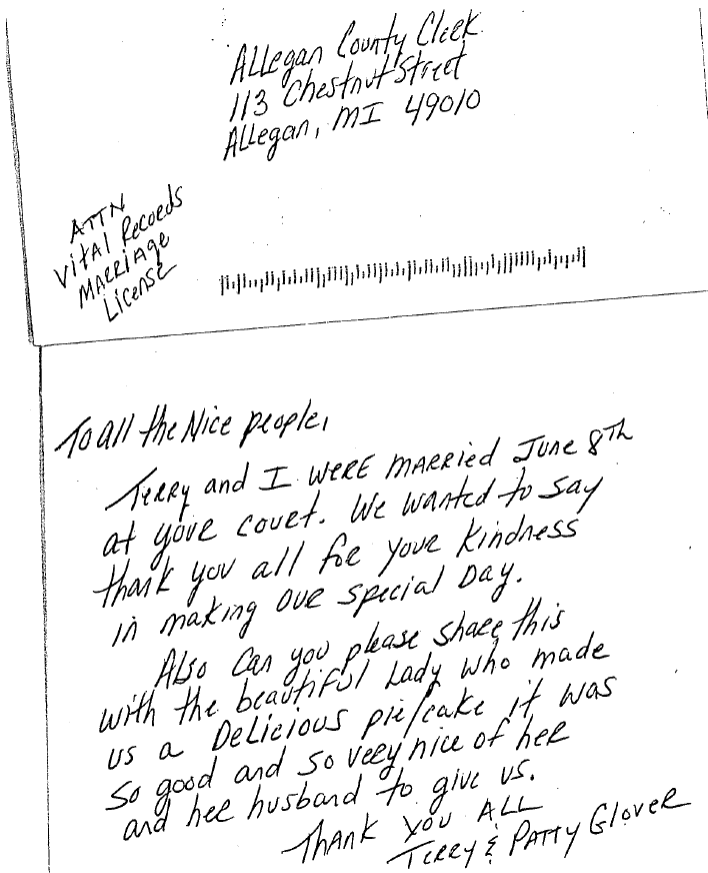 Allegan County Clerk
113 Chestnut Street
Allegan, MI 49010
ATTN
Vital Records
Marriage
License
To all the Nice people,
Terry and I were married June 8th
at your court. We wanted to say
thank you all for your kindness
in making our special Day.
Also can you please share this
with the beautiful Lady who made
us a Delicious pie/cake it was
so good and so very nice of her
and her husband to give us.
Thank you All
Terry & Patty Glover